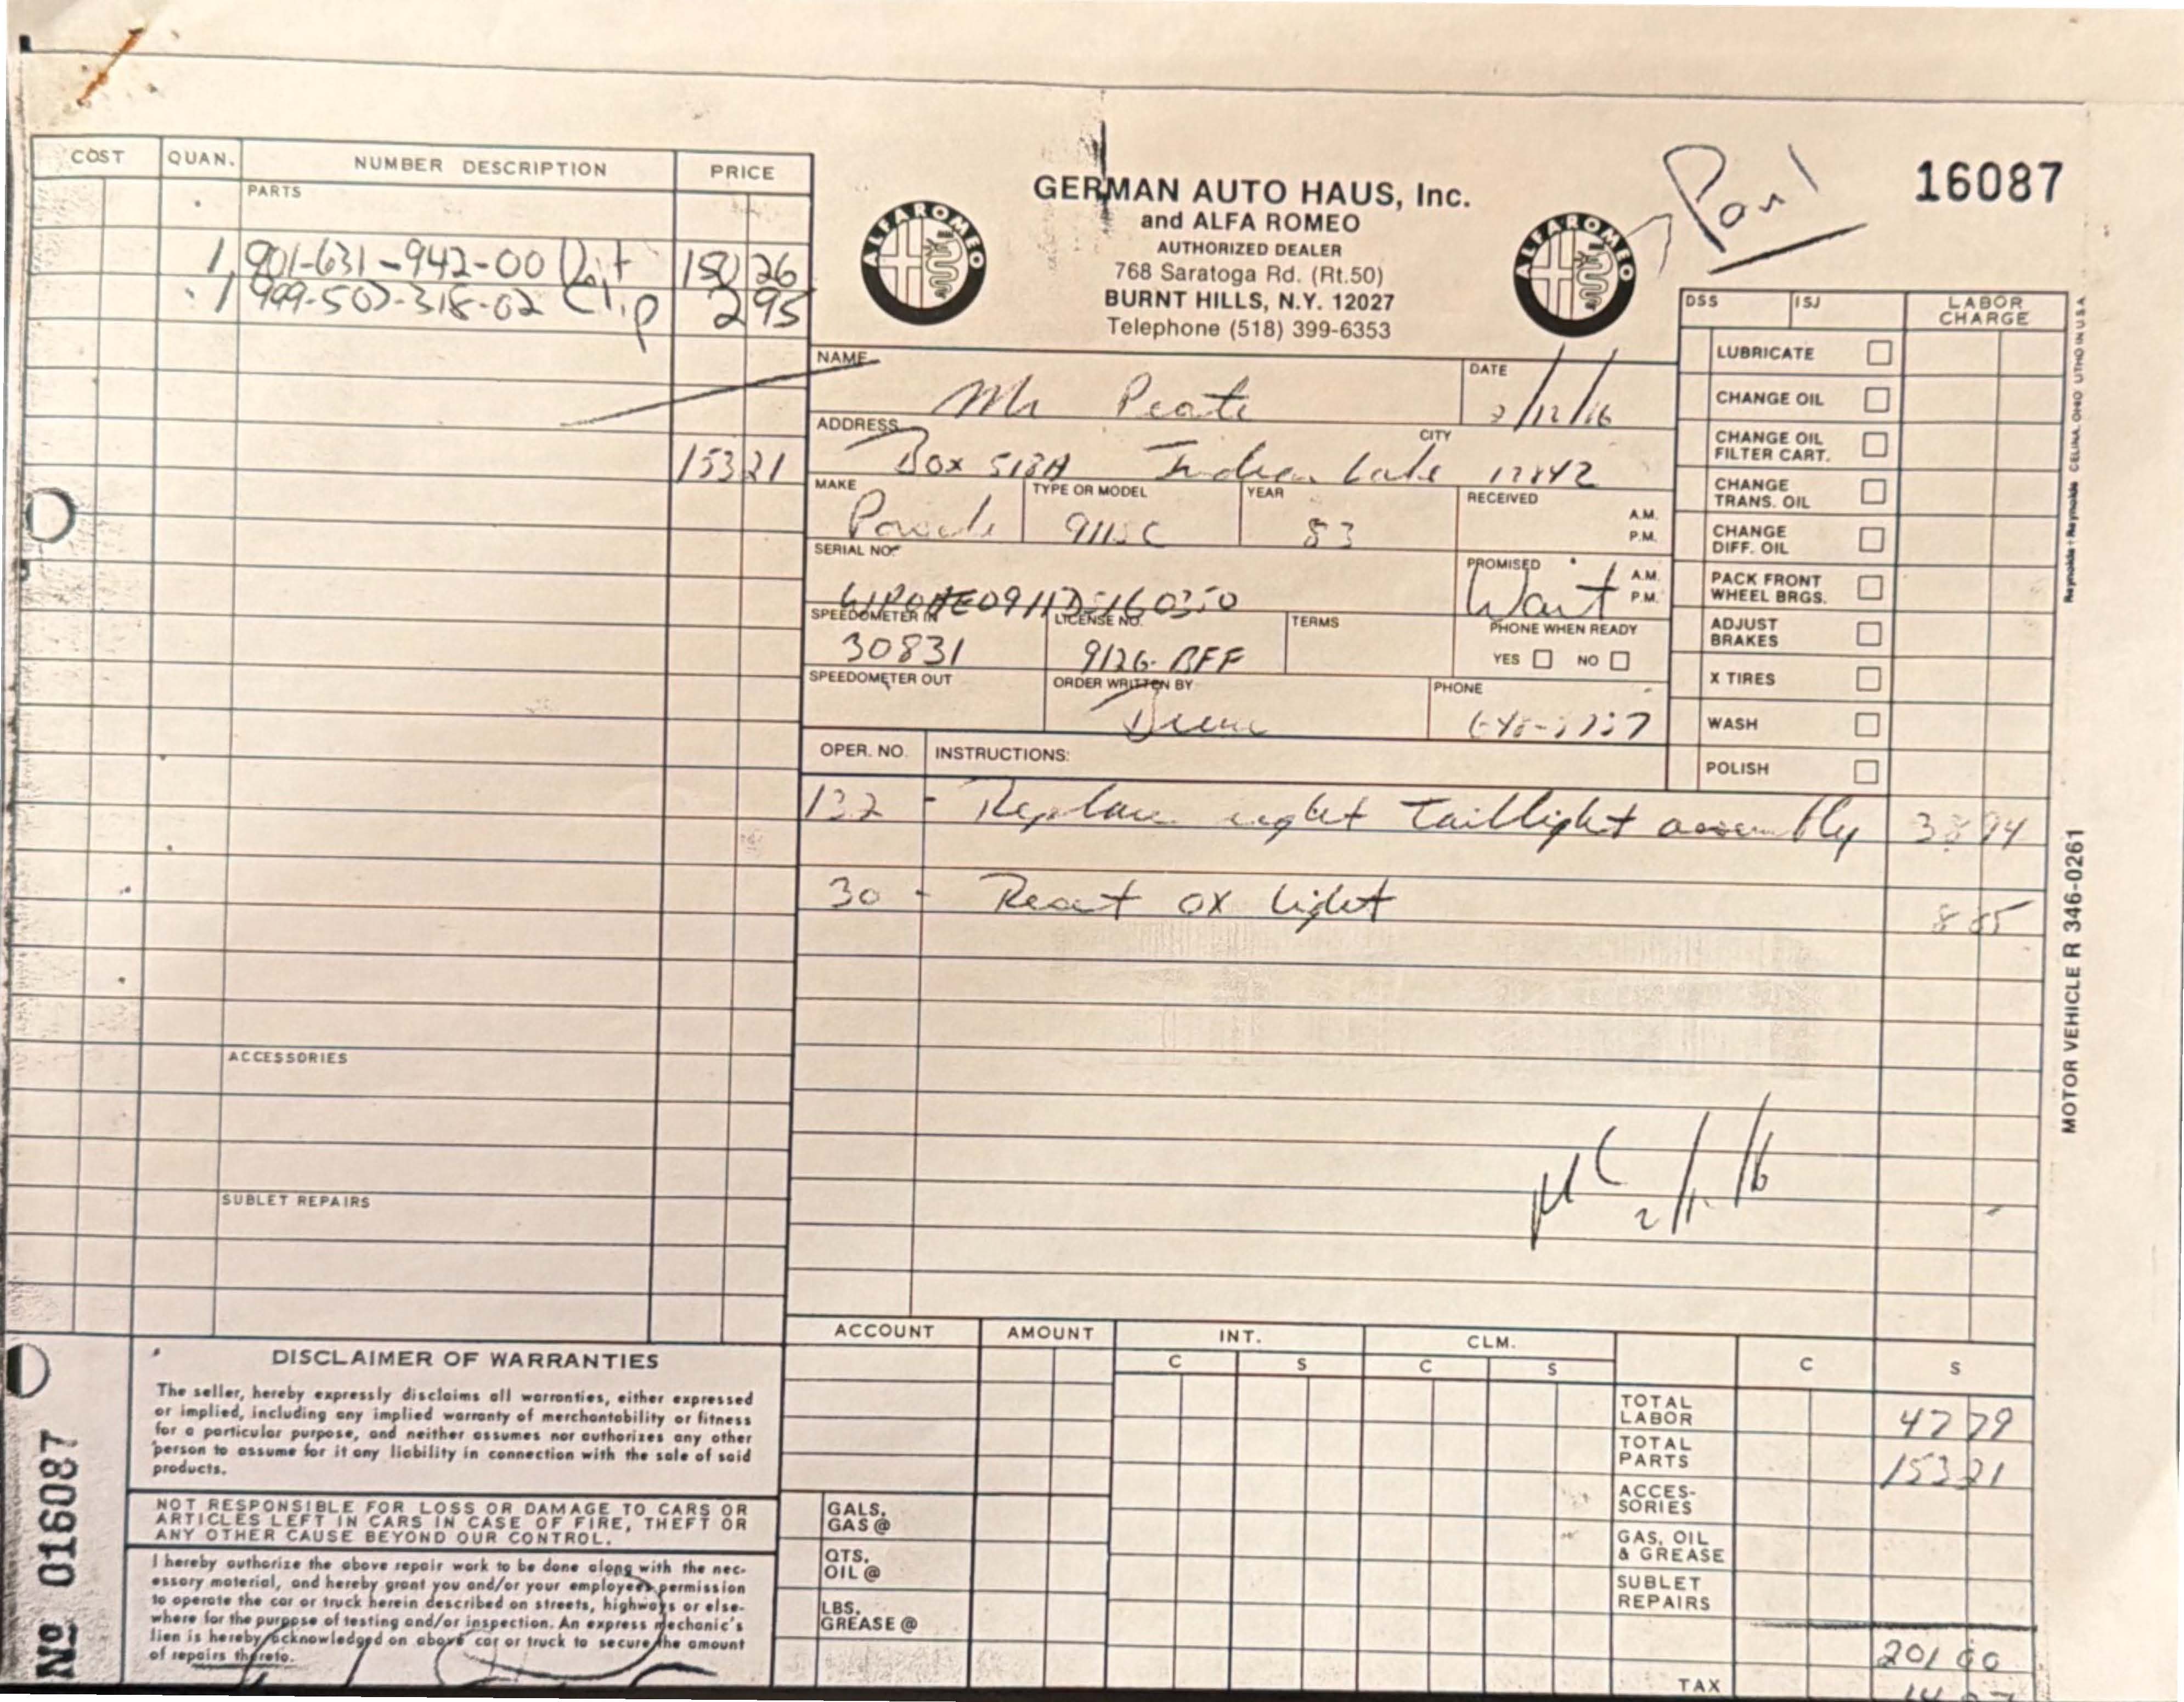 COST QUAN. NUMBER DESCRIPTION PRICE
PARTS
1 901-631-942-00 Unit 150 26
1 999-507-318-02 Clip 2 95
153 21
ACCESSORIES
SUBLET REPAIRS
GERMAN AUTO HAUS, Inc.
and ALFA ROMEO
AUTHORIZED DEALER
768 Saratoga Rd. (Rt.50)
BURNT HILLS, N.Y. 12027
Telephone (518) 399-6353
ALFA ROMEO
ALFA ROMEO
16087
NAME Mr Peate
DATE 2/12/86
ADDRESS Box 513A CITY Indian Lake 12842
MAKE Porsche TYPE OR MODEL 911SC YEAR 83
RECEIVED A.M. P.M.
SERIAL NO.
PROMISED Wait A.M. P.M.
SPEEDOMETER IN 30831 LICENSE NO. 9126-BFF TERMS
PHONE WHEN READY YES NO
SPEEDOMETER OUT ORDER WRITTEN BY PHONE
DSS ISJ LABOR CHARGE
LUBRICATE
CHANGE OIL
CHANGE OIL
FILTER CART.
CHANGE
TRANS. OIL
CHANGE
DIFF. OIL
PACK FRONT
WHEEL BRGS.
ADJUST
BRAKES
X TIRES
WASH
POLISH
OPER. NO. INSTRUCTIONS:
132 - Replace right taillight assembly 38 94
30 - Reset ox light 8 85
ACCOUNT AMOUNT INT. CLM.
C S C S C S
GALS.
GAS @
QTS.
OIL @
LBS.
GREASE @
TOTAL
LABOR 47 79
TOTAL
PARTS 153 21
ACCES-
SORIES
GAS, OIL
& GREASE
SUBLET
REPAIRS
201 00
TAX
DISCLAIMER OF WARRANTIES
The seller, hereby expressly disclaims all warranties, either expressed
or implied, including any implied warranty of merchantability or fitness
for a particular purpose, and neither assumes nor authorizes any other
person to assume for it any liability in connection with the sale of said
products.
NOT RESPONSIBLE FOR LOSS OR DAMAGE TO CARS OR
ARTICLES LEFT IN CARS IN CASE OF FIRE, THEFT OR
ANY OTHER CAUSE BEYOND OUR CONTROL.
I hereby authorize the above repair work to be done along with the nec-
essary material, and hereby grant you and/or your employees permission
to operate the car or truck herein described on streets, highways or else-
where for the purpose of testing and/or inspection. An express mechanic's
lien is hereby acknowledged on above car or truck to secure the amount
of repairs thereto.
No 016087
MOTOR VEHICLE R 346-0261